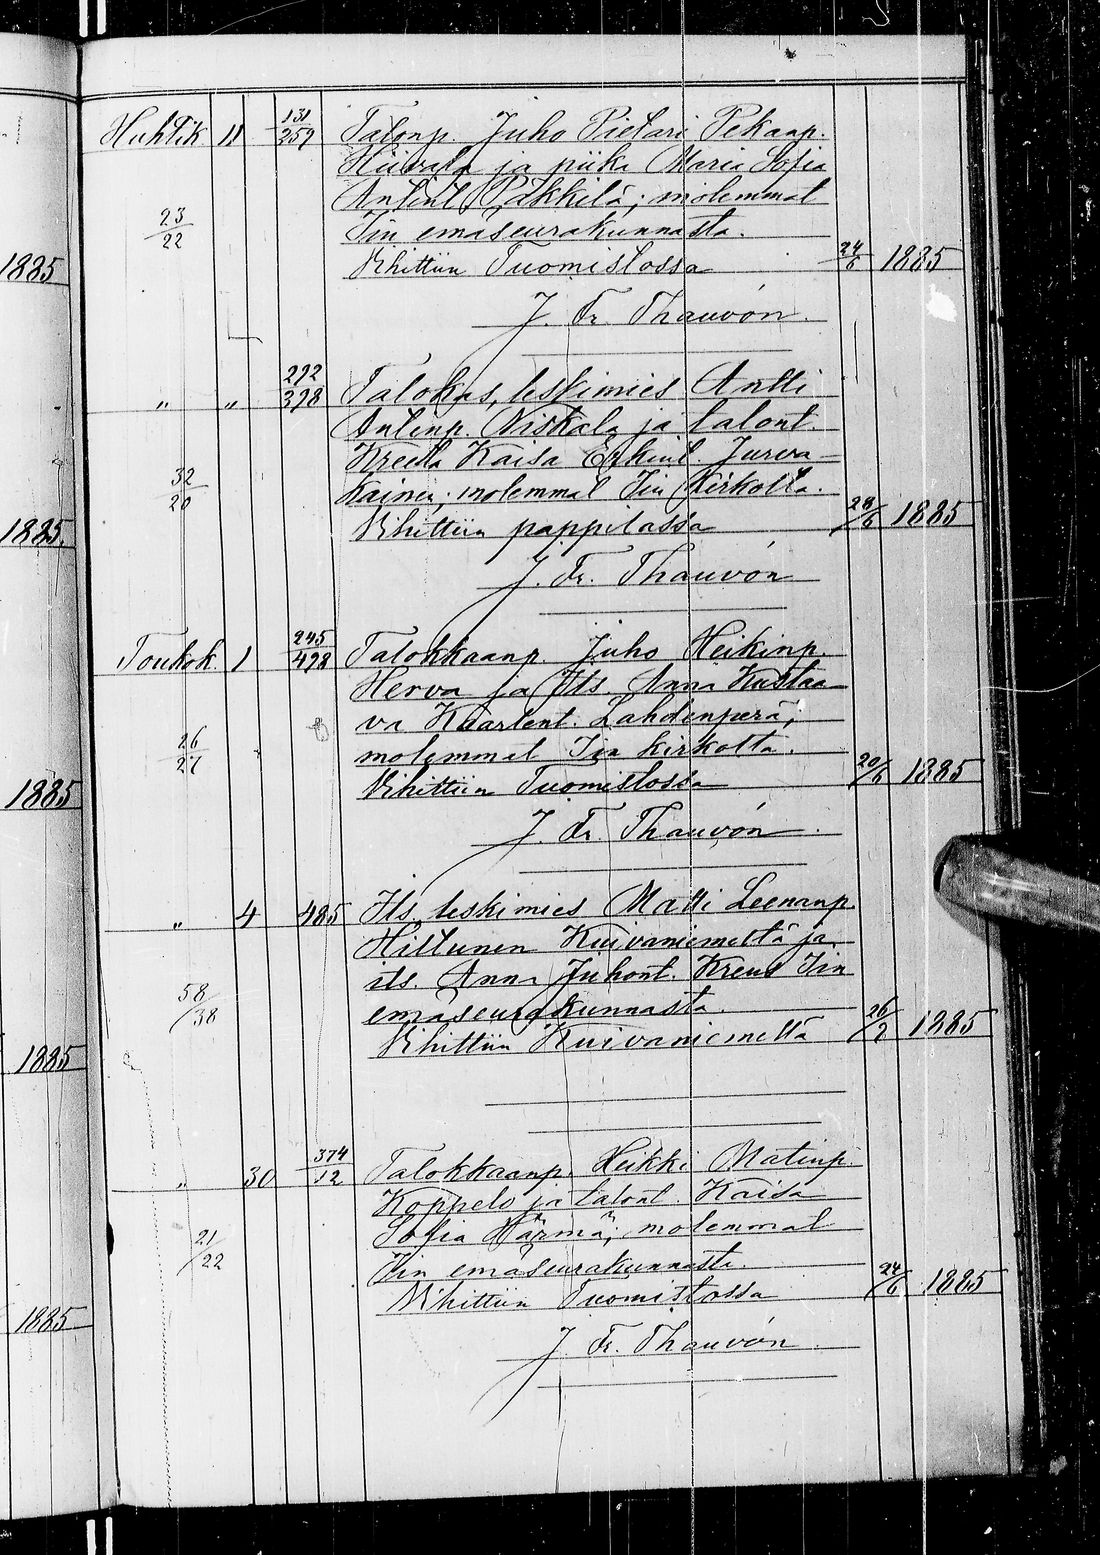 Huhtik. 11 131/259 Talonp. Juho Pietari Pekanp.
Hiivala ja piika Maria Sofia
Antint. Päkkilä; molemmat
23/22 Iin emäseurakunnasta.
1885 Vihittiin Tuomistossa 24/6 1885
J. Fr. Thauvón.
" " 292/398 Talokas, leskimies Antti
Antinp. Niskala ja talont.
Kreeta Kaisa Erkint. Jurva-
32/20 kainen; molemmat Iin kirkolta.
1885 Vihittiin pappilassa 28/6 1885
J. Fr. Thauvón
Toukok. 1 245/498 Talokkaanp. Juho Heikinp.
Herva ja Its. Anna Kustaa-
va Kaarlent. Lahdenperä;
26/27 molemmat Iin kirkolta.
1885 Vihittiin Tuomistossa 20/6 1885
J. Fr. Thauvón.
" 4 485 Its. leskimies Matti Leenanp.
Hiltunen Kuivaniemeltä ja
its. Anna Juhont. Kreus Iin
58/38 emäseurakunnasta.
1885 Vihittiin Kuivaniemellä 26/7 1885
" 30 374/12 Talokkaanp. Heikki Matinp.
Koppelo ja talont. Kaisa
21/22 Sofia Härmä; molemmat
Iin emäseurakunnasta.
1885 Vihittiin Tuomistossa 24/6 1885
J. Fr. Thauvón.